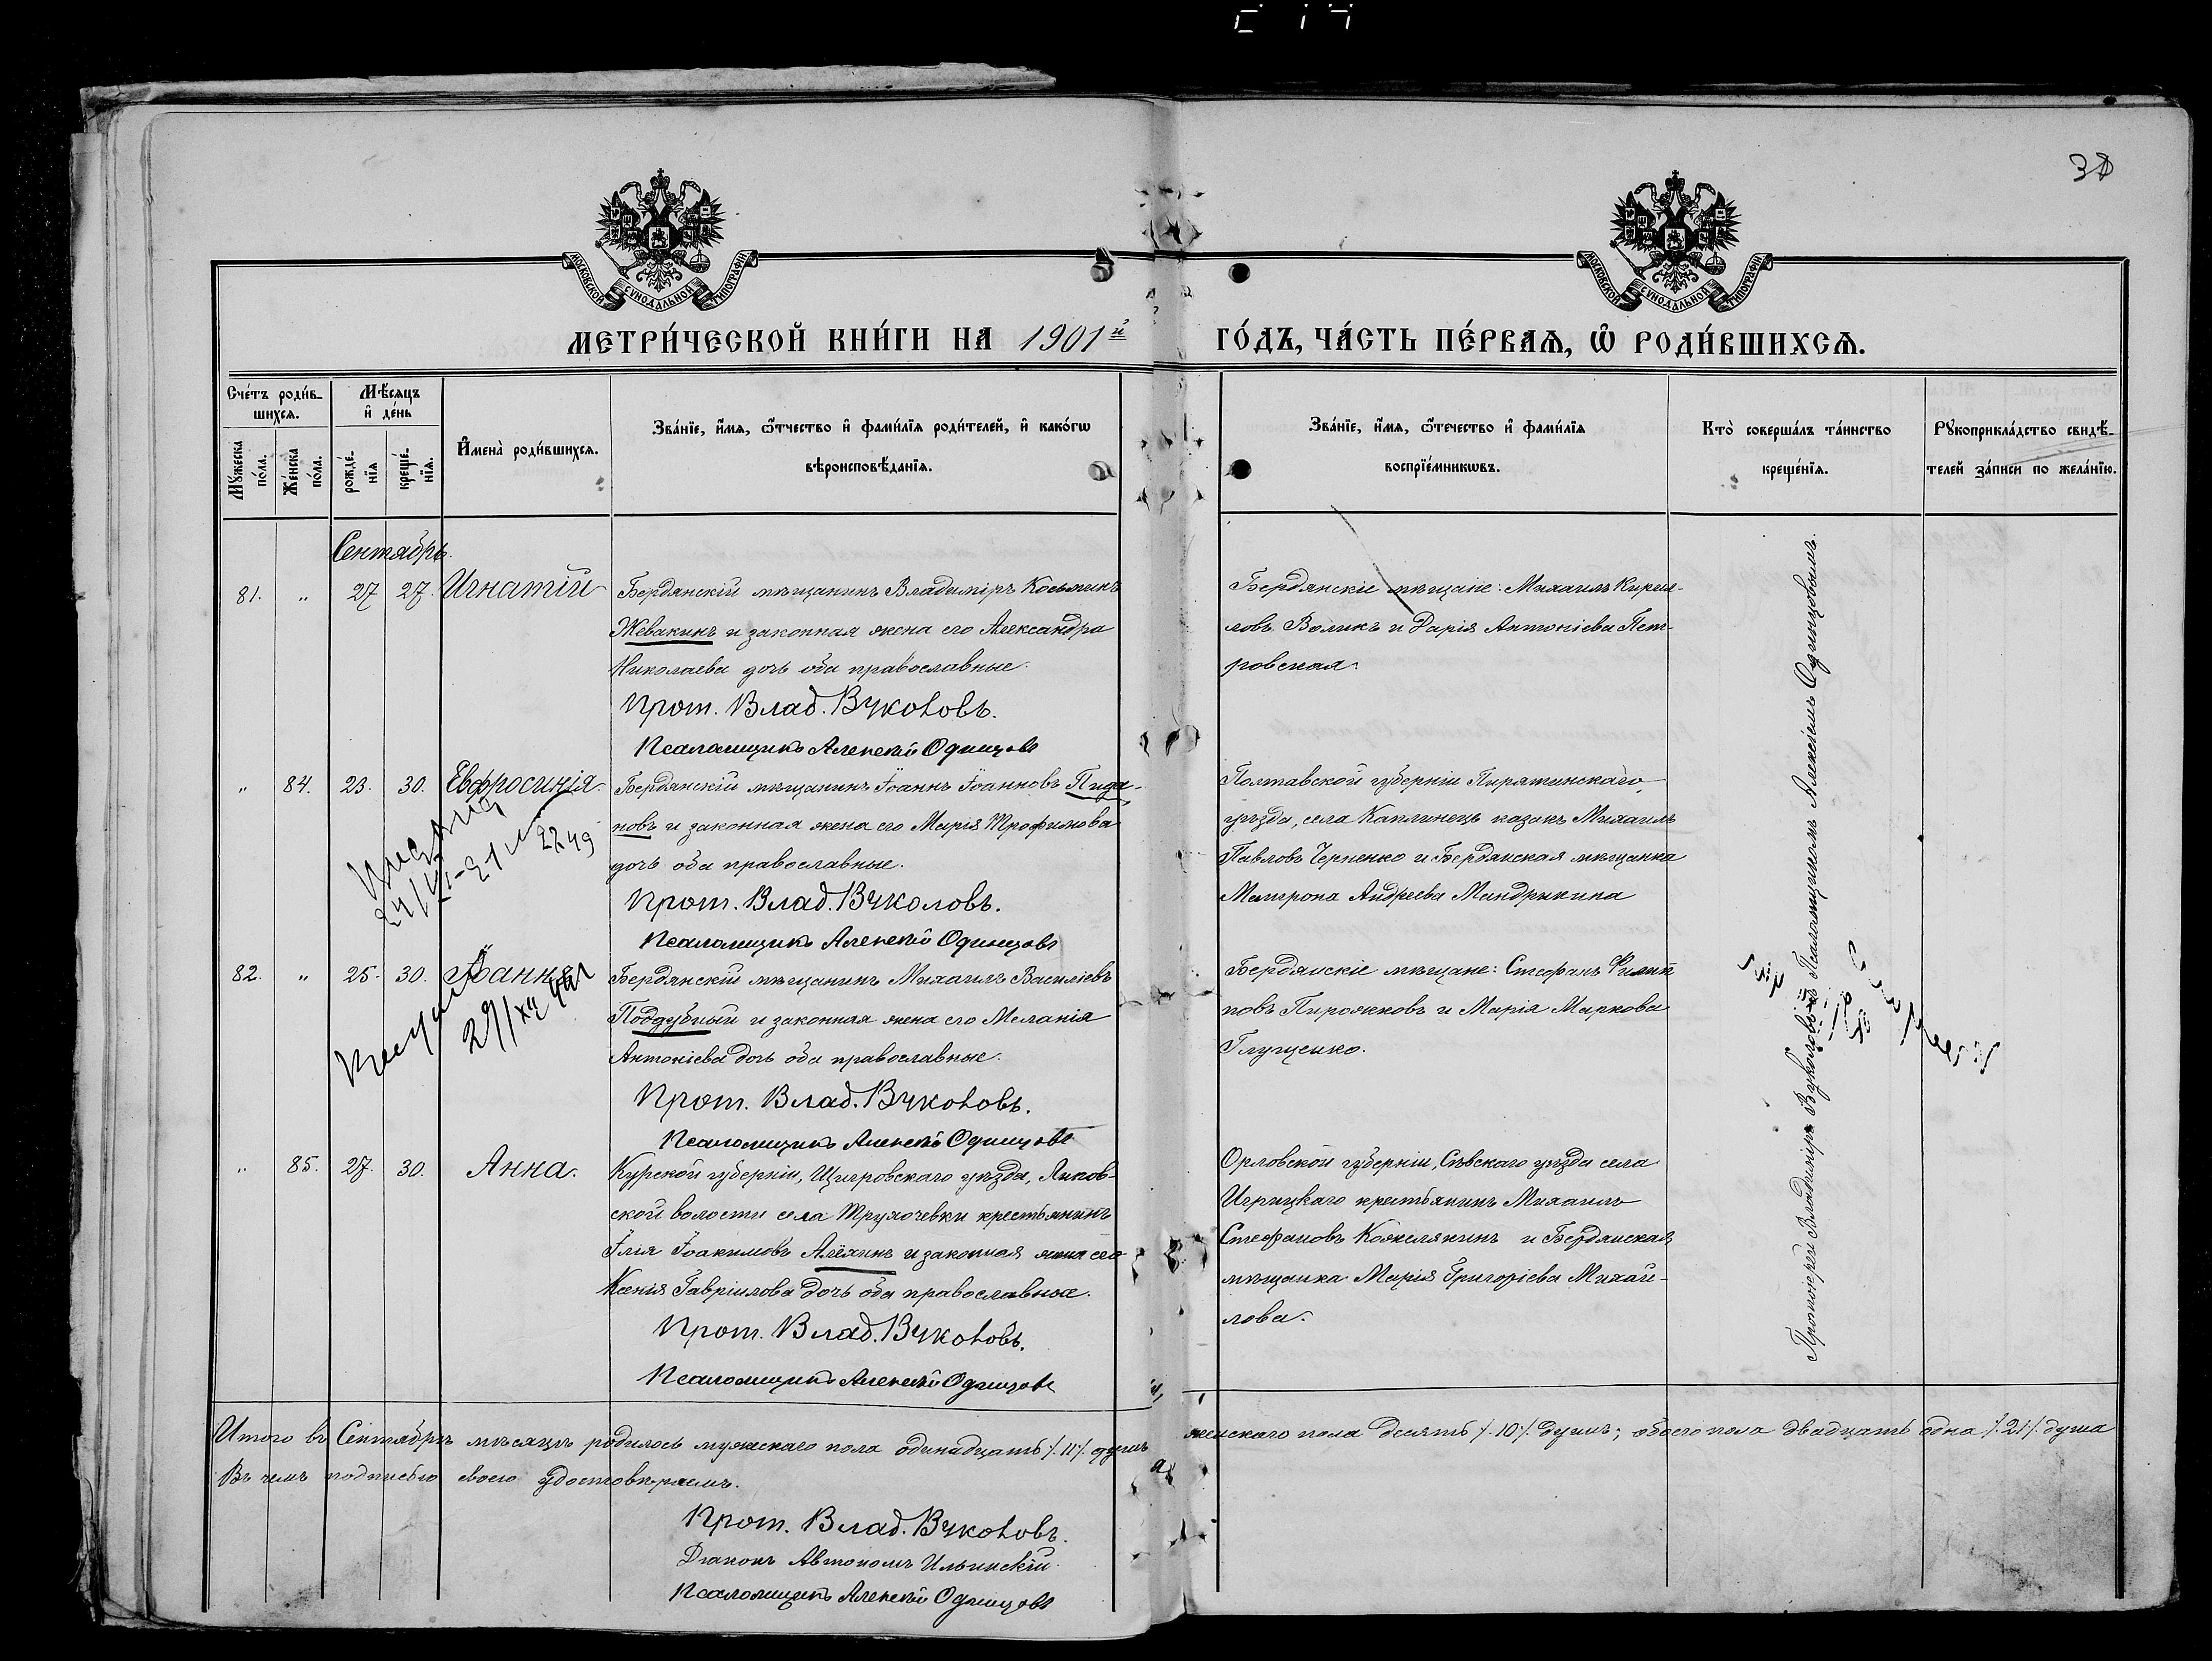 38
МОСКОВСКОЙ СѴНОДАЛЬНОЙ ТИПОГРАФІИ
МОСКОВСКОЙ СѴНОДАЛЬНОЙ ТИПОГРАФІИ
МЕТРИ́ЧЕСКОЙ КНИ́ГИ НА 1901й ГО́ДЪ, ЧА́СТЬ ПЕ́РВАѦ, Ѡ҆ РОДИ́ВШИХСѦ.
Сче́тъ роди́в-
шихсѧ.
Мꙋжеска по́ла.
Же́нска по́ла.
Мѣ́сѧцъ
и҆ де́нь
рожде́-
нїѧ
креще́-
нїѧ.
И҆мена̀ роди́вшихсѧ.
Зва́нїе, и҆́мѧ, ѻ҆́тчество и҆ фами́лїѧ роди́телей, и҆ како́гѡ
вѣроисповѣ́данїѧ.
Зва́нїе, и҆́мѧ, ѻ҆́течество и҆ фами́лїѧ
воспрїе́мникѡвъ.
Кто̀ соверша́лъ та́инство
креще́нїѧ.
Рꙋкоприкла́дство свидѣ́-
телей за́писи по жела́нїю.
Сентябрь.
81. " 27 27. Игнатій
Бердянскій мѣщанинъ Владиміръ Косьминъ
Жевакинъ и законная жена его Александра
Николаева дочь оба православные.
Прот. Влад. Вуколовъ.
Псаломщикъ Алексѣй Одинцовъ
Бердянскіе мѣщане: Михаилъ Кирил-
ловъ Воликъ и Дарія Антоніева Пет-
ровская.
" 84. 23. 30. Евфросинія.
Бердянскій мѣщанинъ Іоаннъ Іоанновъ Пида-
новъ и законная жена его Марія Трофимова
дочь оба православные.
Прот. Влад. Вуколовъ.
Псаломщикъ Алексѣй Одинцовъ
Полтавской губерніи Пирятинскаго
уѣзда, села Каплинецъ казакъ Михаилъ
Павловъ Черненко и Бердянская мѣщанка
Матрона Андреева Мандрыкина
2249
82. " 25. 30. Іоаннъ
Бердянскій мѣщанинъ Михаилъ Василіевъ
Поддубный и законная жена его Меланія
Антоніева дочь оба православные.
Прот. Влад. Вуколовъ.
Псаломщикъ Алексѣй Одинцовъ
Бердянскіе мѣщане: Стефанъ Филип
повъ Пирожковъ и Марія Маркова
Глущенко.
" 85. 27. 30. Анна.
Курской губерніи, Щигровскаго уѣзда,
ской волости села Трухочевки крестьянинъ
Илія Іоакимовъ Алёхинъ и законная жена его
Ксенія Гавріилова дочь оба православные.
Прот. Влад. Вуколовъ.
Псаломщикъ Алексѣй Одинцовъ
Орловской губерніи, Сѣвскаго уѣзда села
Игрицкаго крестьянинъ Михаилъ
Стефановъ Кожелякинъ и Бердянская
мѣщанка Марія Григоріева Михай-
лова.
Протоіерей Владиміръ Вуколовъ съ Псаломщикомъ Алексѣемъ Одинцовымъ.
Итого въ Сентябрѣ мѣсяцѣ родилось мужескаго пола одинадцать /.11/. душъ женскаго пола десять /.10/. душъ; обоего пола двадцать одна /.21/. душа
Въ чемъ подписью своею удостовѣряемъ.
Прот. Влад. Вуколовъ.
Діаконъ Автономъ Ильинскій.
Псаломщикъ Алексѣй Одинцовъ